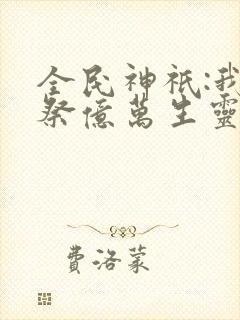 全民神祇:我
祭億萬生靈
費洛蒙